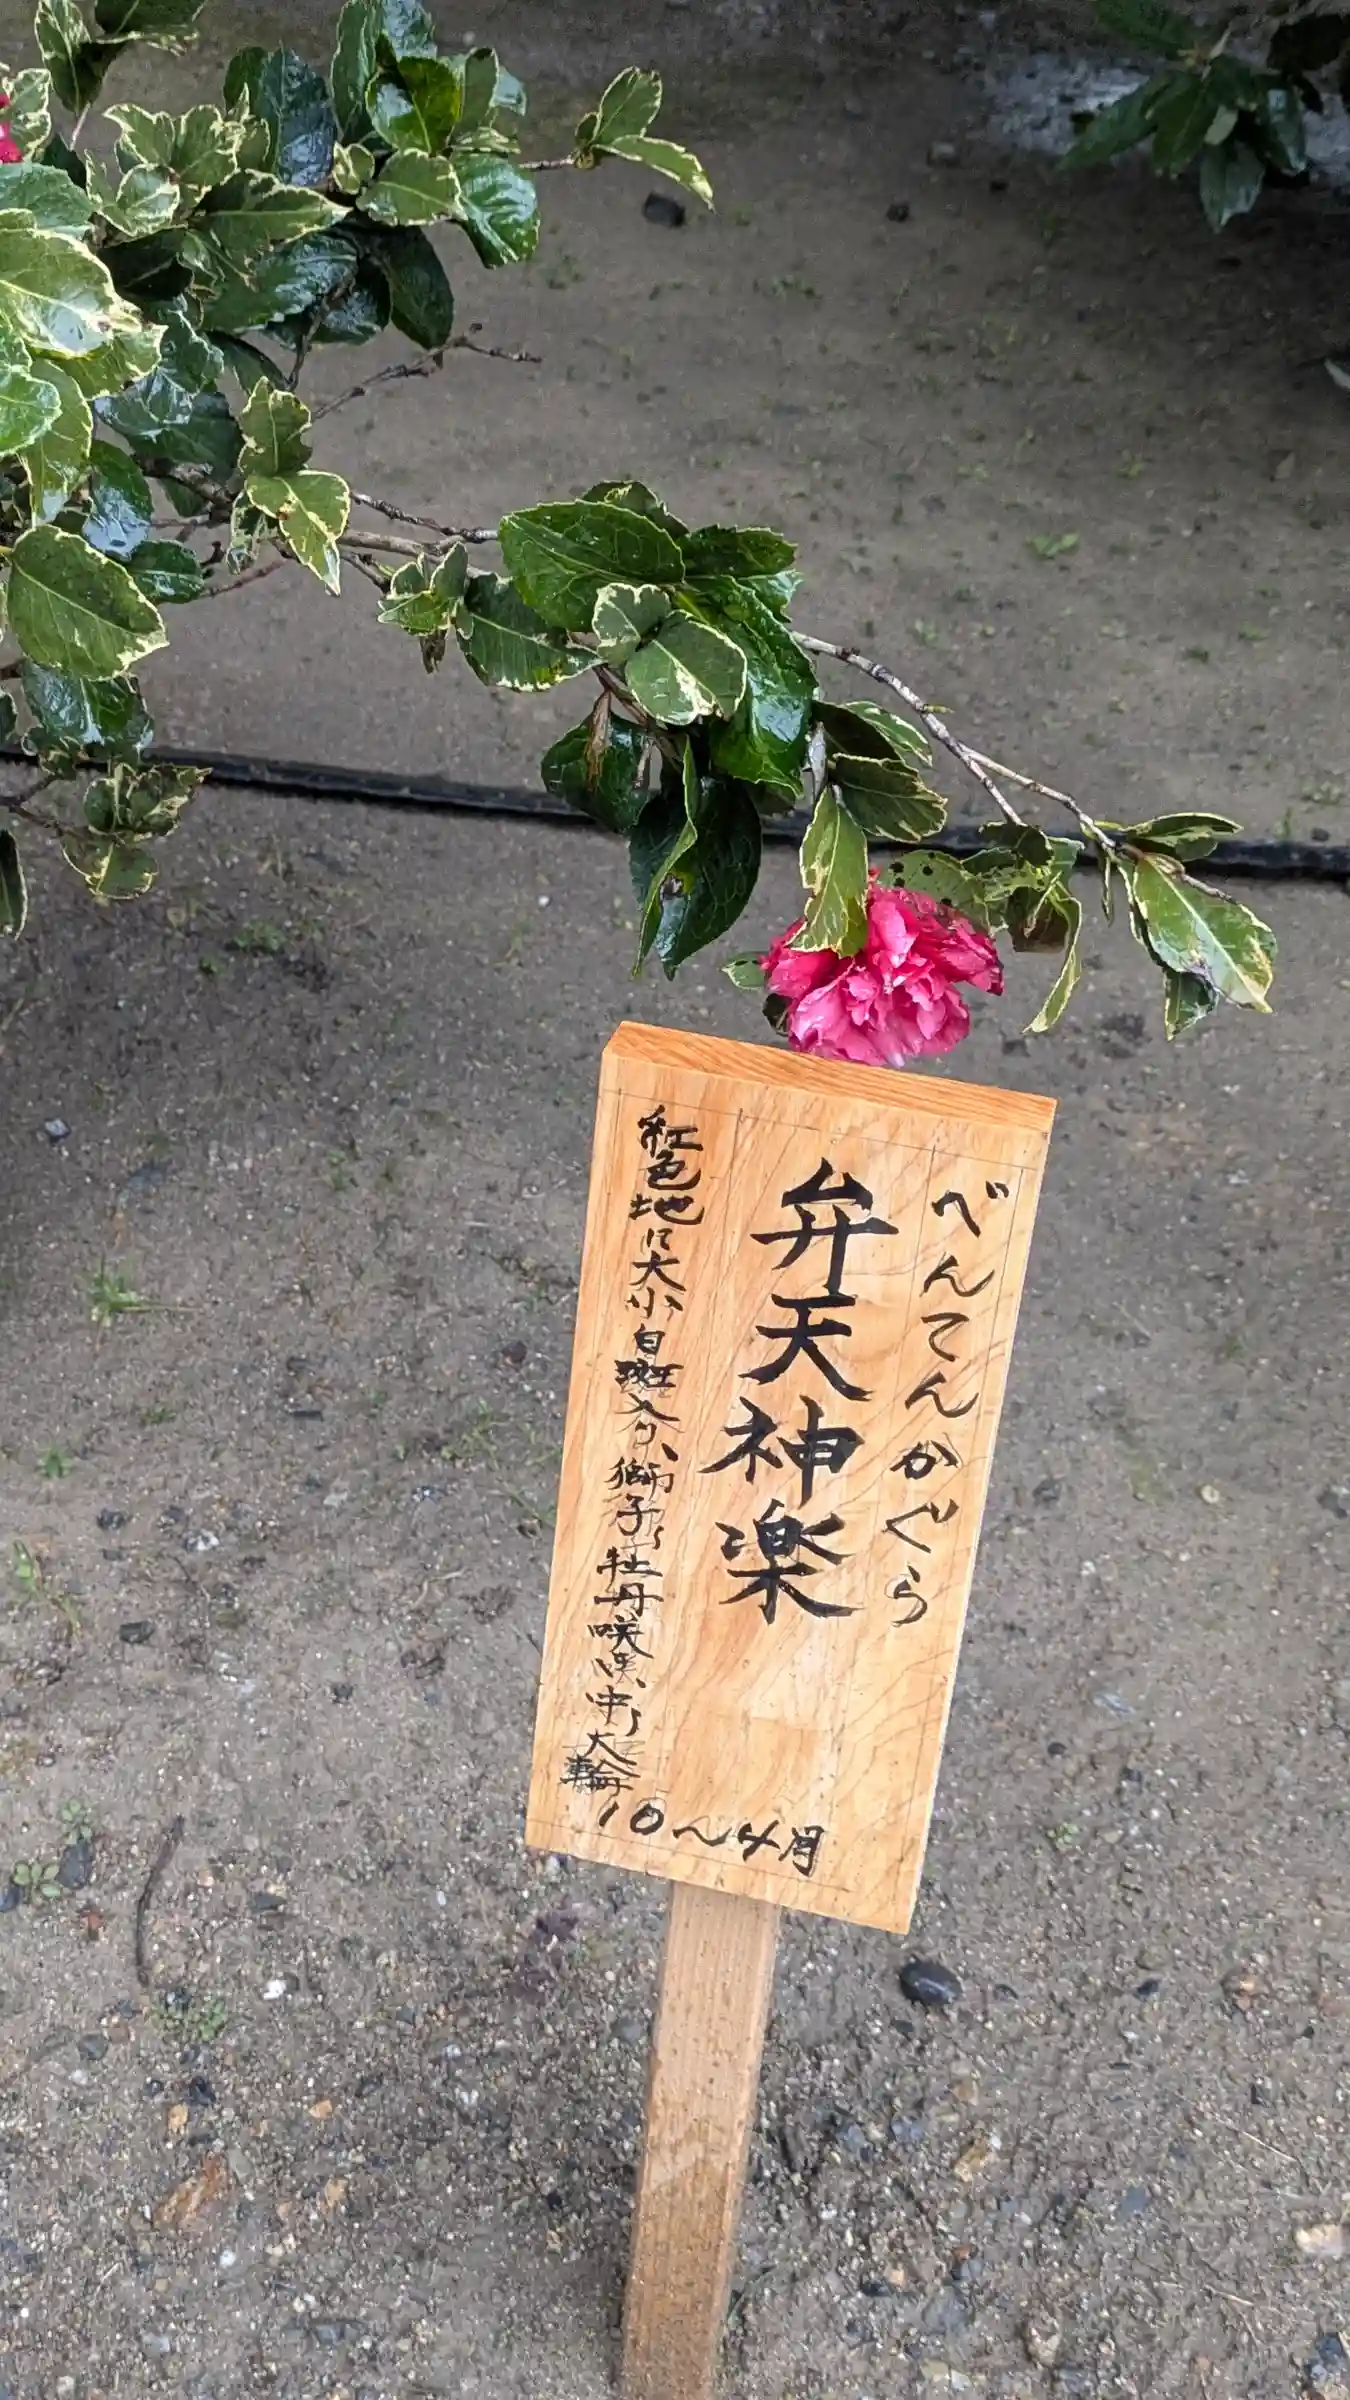 べんてんかぐら
弁天神楽
紅色地に大小白斑入り、獅子〜牡丹咲き、中〜大輪
10〜4月